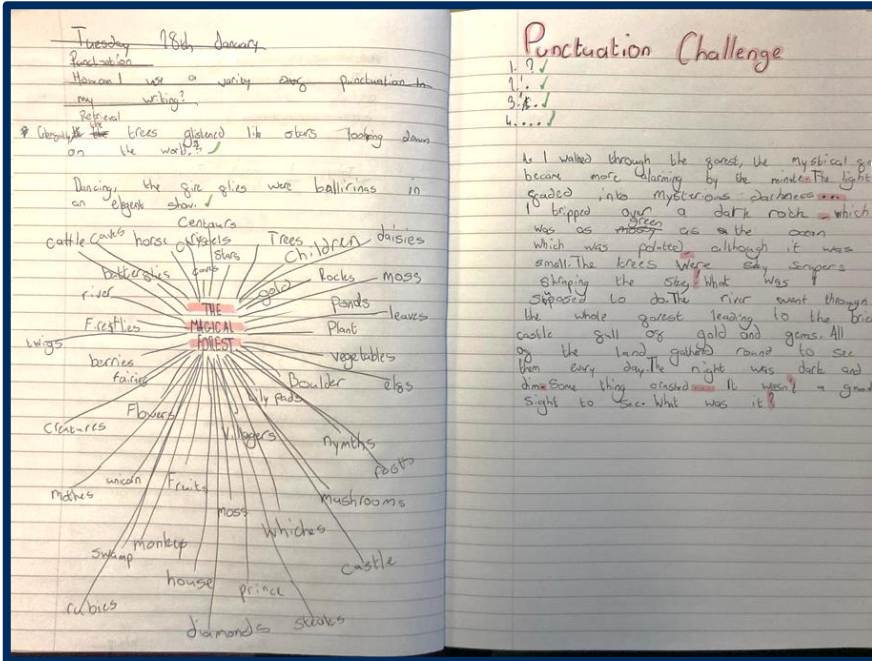 Tuesday 18th January
Punctuation
How can I use a varity of punctuation in
my writing?
Retrieval
the trees glistened like stars looking down
on the world.
Dancing, the fire flies were ballirings in
an elegent show.
Centaurs
cattle caves horse crystels Trees children daisies
stars
butterflies caves gold Rocks moss
river THE Ponds leaves
Fireflies MAGICAL Plant
twigs FOREST vegetables
berries Boulder elfs
fairies lily pads
Flowers villagers nymths
creatures posts
unicorn Fruits mushrooms
mothes moss whiches
swamp monkey castle
house prince
rubies diamonds
Punctuation Challenge
1. ?
2. !
3.
4. ...
As I walked through the forest, the mystical
became more alarming by the minute. The light
faded into mysterious darkness...
I tripped over a dark rock - which
green
was as mossy as the
which was pointed, although it was
small. The trees were sky scrapers
shraping the sky! What was I
supposed to do. The river went through
the whole forest leading to the
castle full of gold and gems. All
of the land gatherd round to see
them every day. The night was dark and
dim. Some thing crashed... It wasn't a
sight to see. What was it?